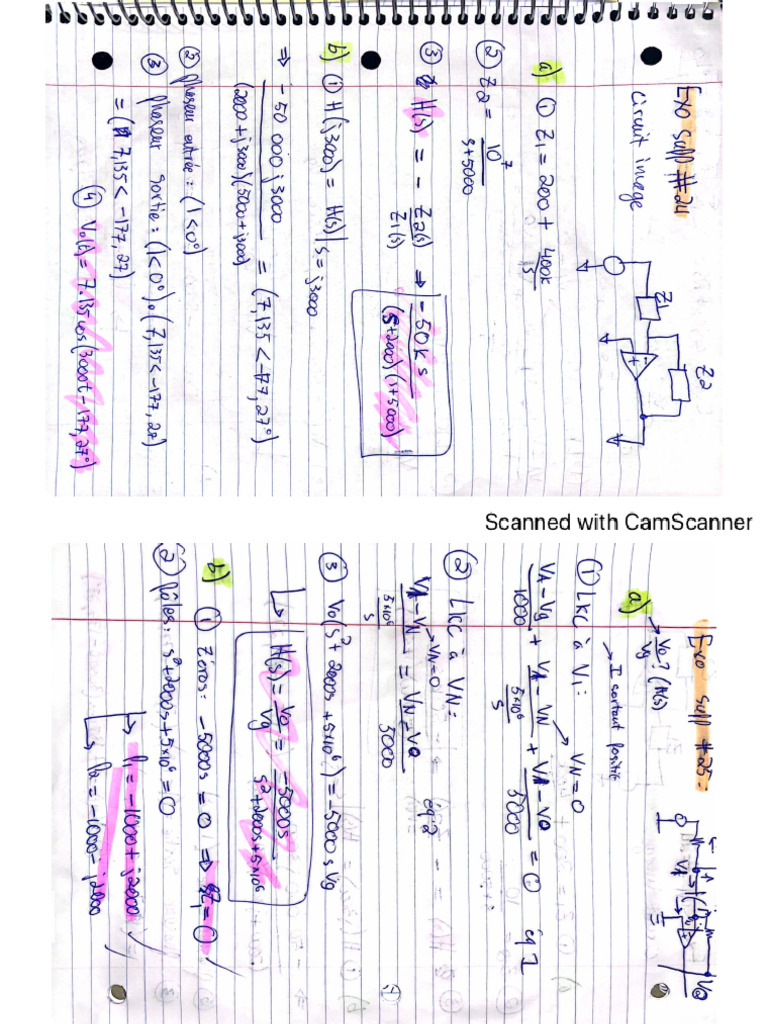 Exo supp #24
circuit inverse
Z1
Z2
a) ① Z1 = 200 + 400k/s
② Z2 = 10^7/(s+5000)
③ H(s) = - Z2(s)/Z1(s) ⇒ -50k s/((s+2000)(s+5000))
b) ① H(j3000) = H(s)|s=j3000
⇒ -50 000 j3000/((2000+j3000)(5000+j3000)) = (7,135 < -177,27°)
② phaseur entrée : (1<0°)
③ phaseur sortie : (1<0°)•(7,135<-177,28)
= (7,135 < -177,27)
④ Vo(t) = 7.135 cos(3000t - 177,27°)
Scanned with CamScanner
Exo supp #25 :
VA
VO
a) → VO/Vg ? (H(s))
→ I sortant positif
① LKC à V1 :
VN = 0
(VA-Vg)/1000 + (VA-VN)/(5×10^6/s) + (VA-VO)/5000 = 0 éq 1
② LKC à VN :
VN=0
(VA-VN)/(5×10^6/s) = (VN-VO)/5000 éq 2
③ Vo(s²+2000s+5×10^6) = -5000 s Vg
↳ H(s) = VO/Vg = -5000s/(s²+2000s+5×10^6)
b) ① Zéros : -5000s = 0 ⇒ Z1 = 0 ✓
② Pôles : s²+2000s+5×10^6 = 0
↳ P1 = -1000 + j2000 ✓
↳ P2 = -1000 - j2000 ✓